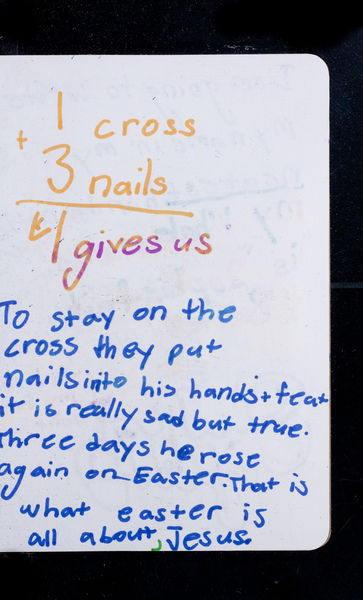 1 cross
+ 3 nails
4 gives us
To stay on the
cross they put
nails into his hands + feat
it is really sad but true.
three days he rose
again on Easter. That is
what easter is
all about, Jesus.